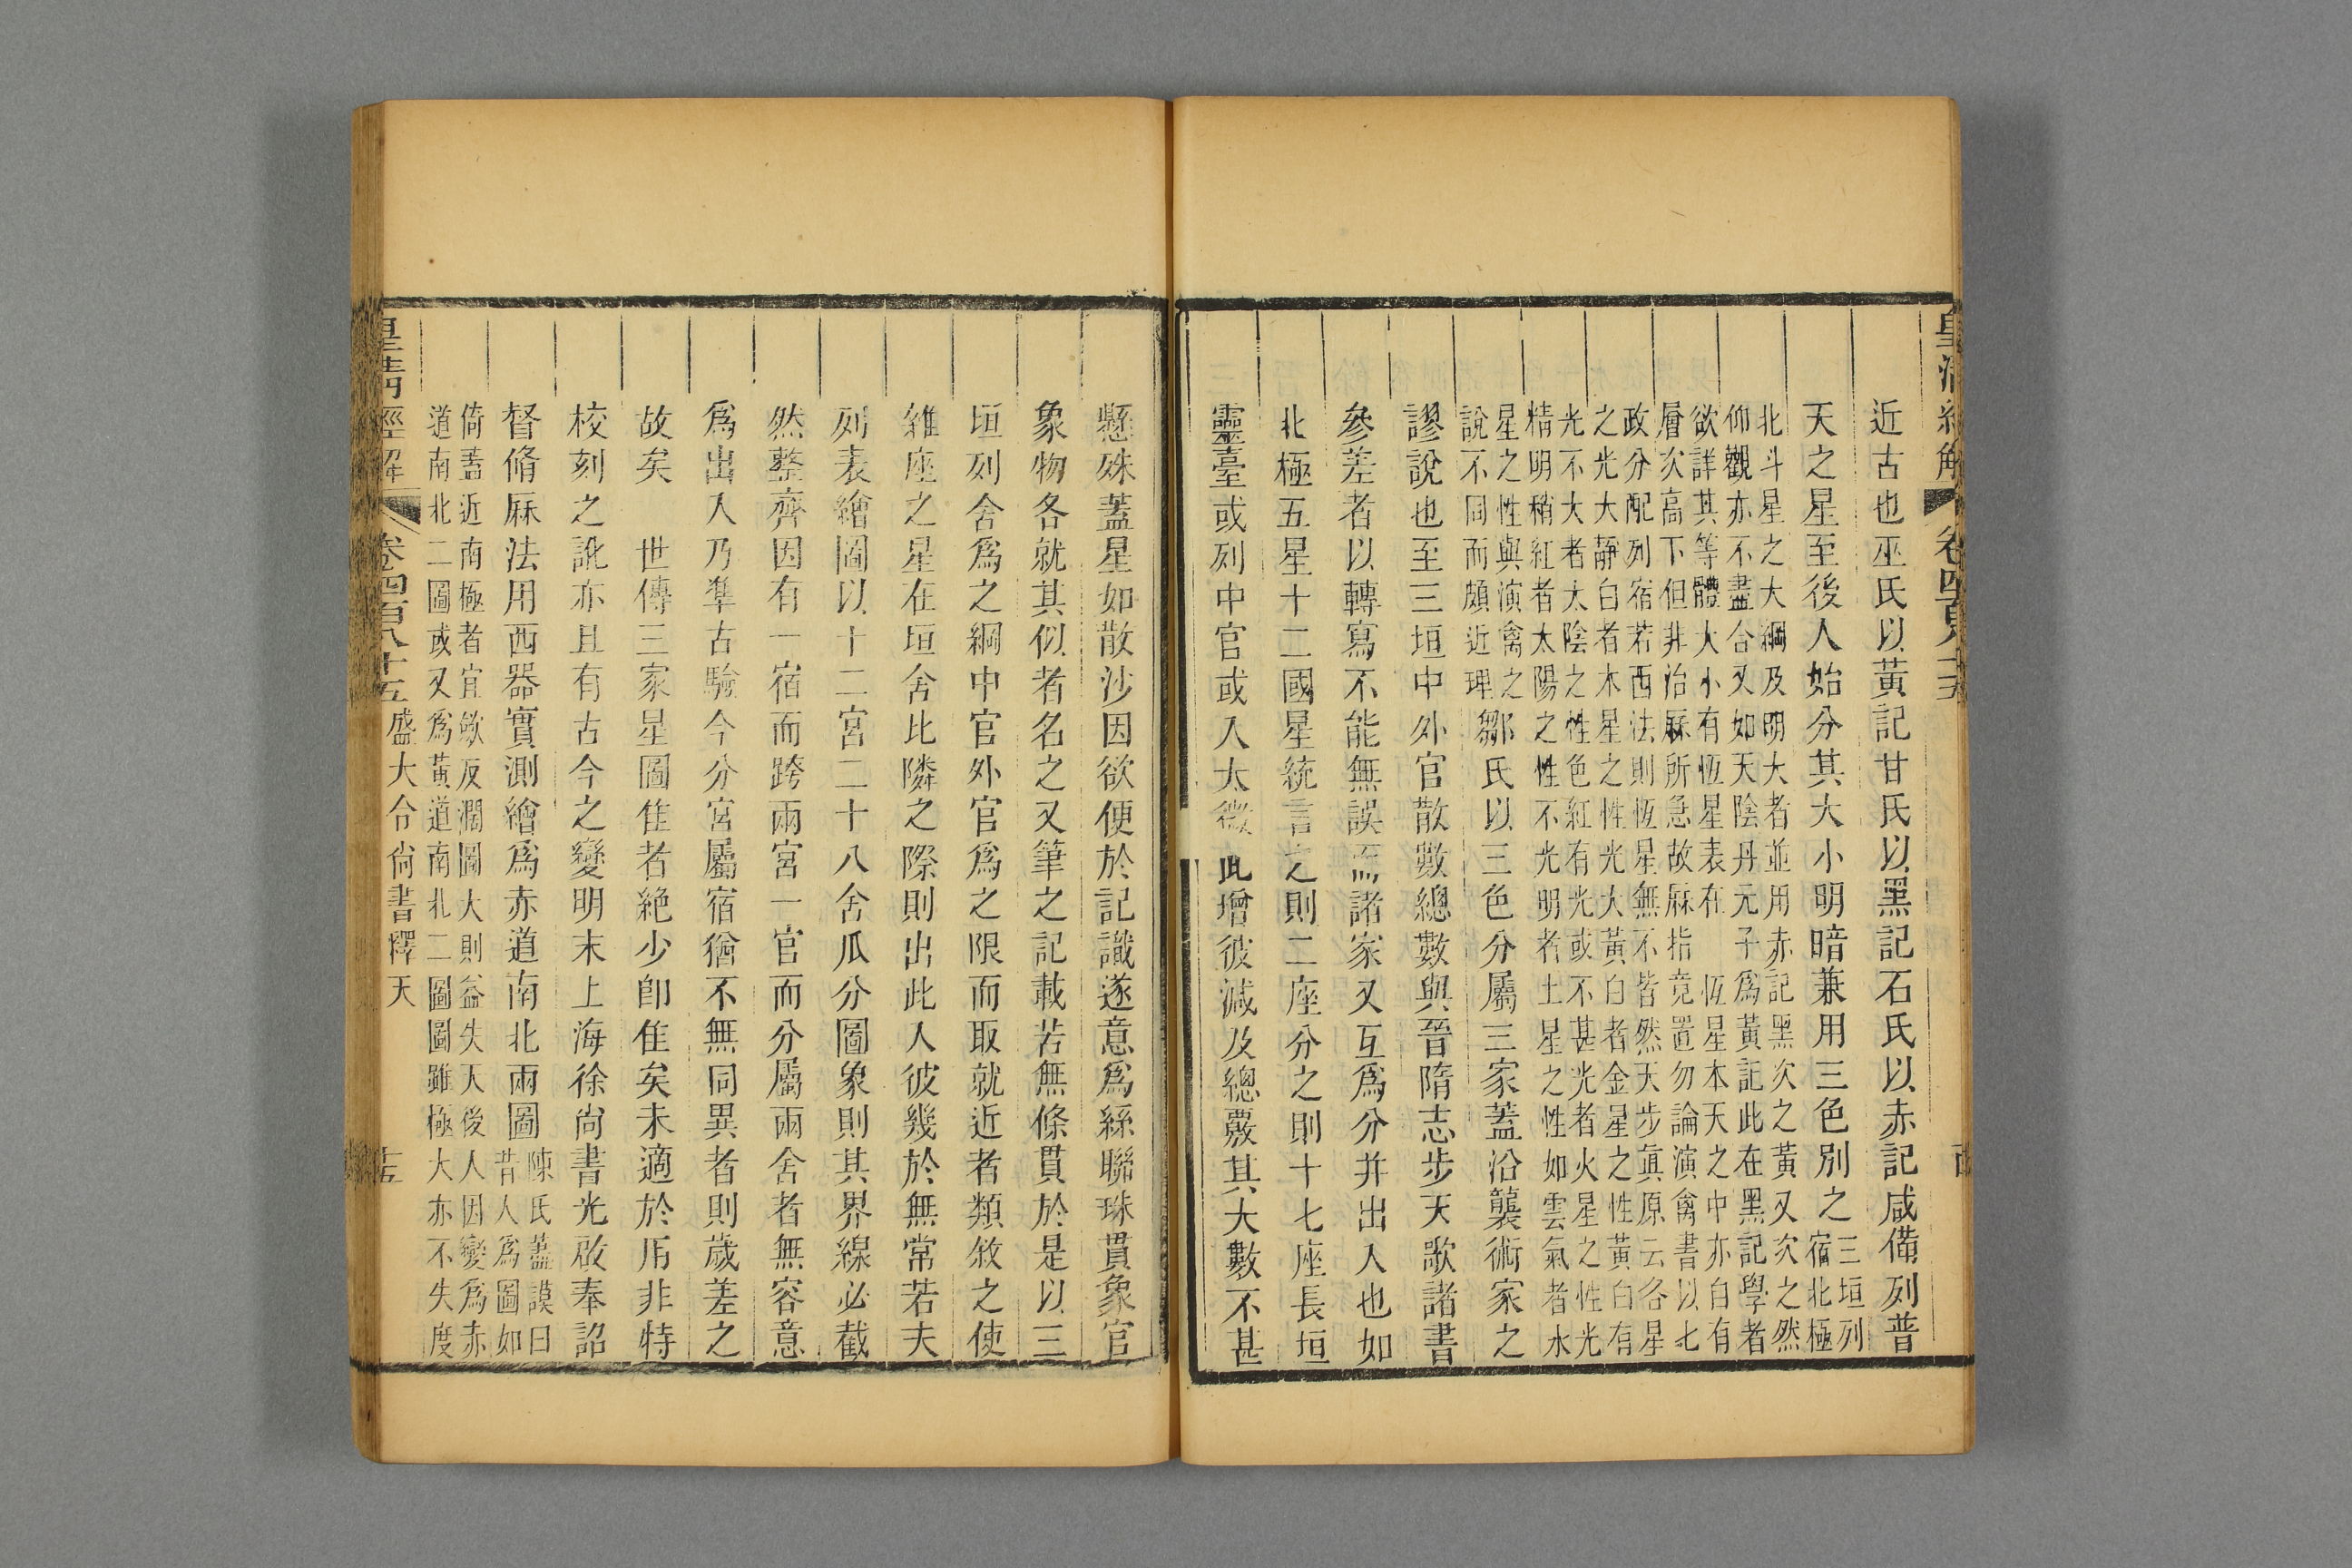 皇清經解
卷四百八十五
近古也巫氏以黃記甘氏以黑記石氏以赤記咸備列普
天之星至後人始分其大小明暗兼用三色別之三垣列
宿北極
北斗星之大綱及明大者並用赤記黑次之黃又次之然
仰觀亦不盡合又如天陰丹元子為黃記此在黑記學者
欲詳其等體大小有恆星表在 恆星本天之中亦自有
層次高下但非治厤所急故厤指竟置勿論演禽書以七
政分配列宿若西法則恆星無不皆然天步眞原云各星
之光大靜白者木星之性光大黃白者金星之性黃白有
光不大者太陰之性色紅有光或不甚光者火星之性光
精明稍紅者太陽之性不光明者土星之性如雲氣者水
星之性與演禽之
說不同而頗近理
鄒氏以三色分屬三家蓋沿襲術家之
謬說也至三垣中外官散數總數與晉隋志步天歌諸書
參差者以轉寫不能無誤而諸家又互爲分并出入也如
北極五星十二國星統言之則二座分之則十七座長垣
靈臺或列中官或入太微此增彼減及總覈其大數不甚
懸殊蓋星如散沙因欲便於記識遂意爲絲聯珠貫象官
象物各就其似者名之又筆之記載若無條貫於是以三
垣列舍爲之綱中官外官爲之限而取就近者類敘之使
雜座之星在垣舍比隣之際則出此入彼幾於無常若夫
列表繪圖以十二宮二十八舍瓜分圖象則其界線必截
然整齊因有一宿而跨兩宮一官而分屬兩舍者無容意
爲出入乃準古驗今分宮屬宿猶不無同異者則歲差之
故矣 世傳三家星圖隹者絶少卽隹矣未適於用非特
校刻之訛亦且有古今之變明末上海徐尙書光啟奉詔
督脩厤法用西器實測繪爲赤道南北兩圖陳氏藎謨曰
昔人爲圖如
倚蓋近南極者宜斂反濶圖大則益失天後人因變爲赤
道南北二圖或又爲黃道南北二圖圖雖極大亦不失度
皇清經解
卷四百八十五 盛大令尙書釋天
十五